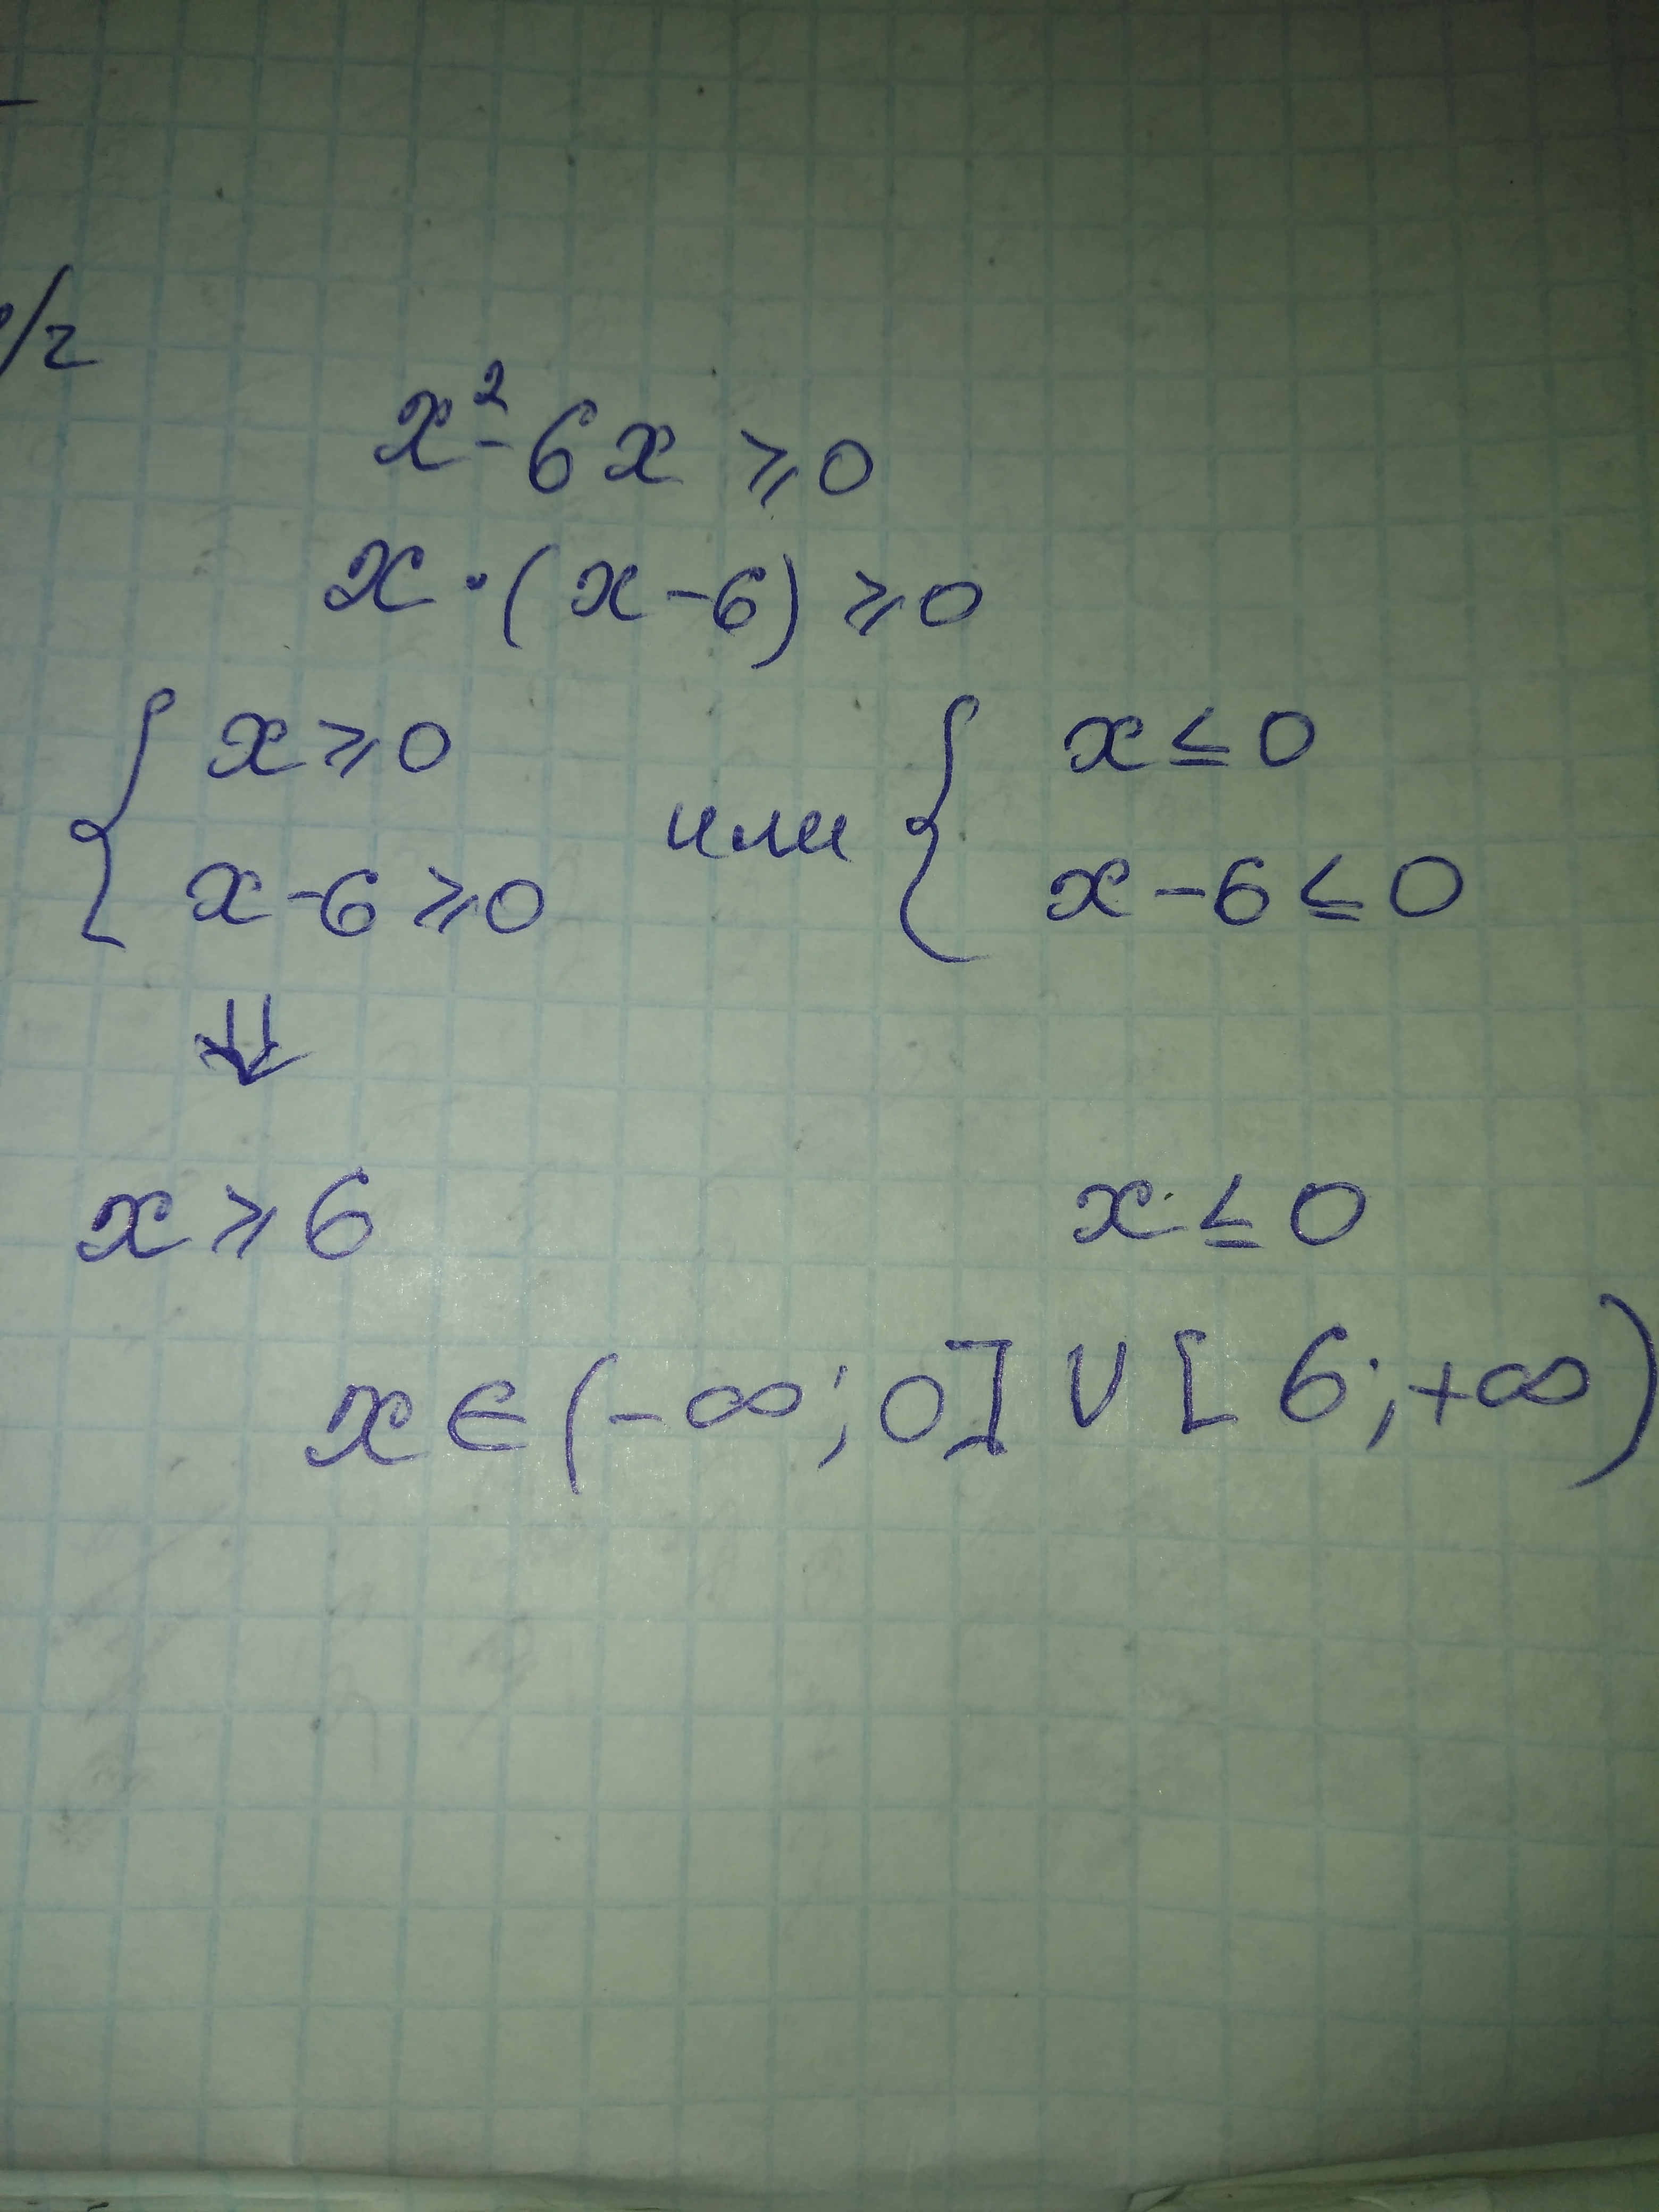 /2
x² - 6x ⩾ 0
x · (x - 6) ⩾ 0
{ x ⩾ 0 или { x ≤ 0
x - 6 ⩾ 0 x - 6 ≤ 0
⇓
x ⩾ 6 x ≤ 0
x ∈ (-∞; 0] ∪ [6; +∞)